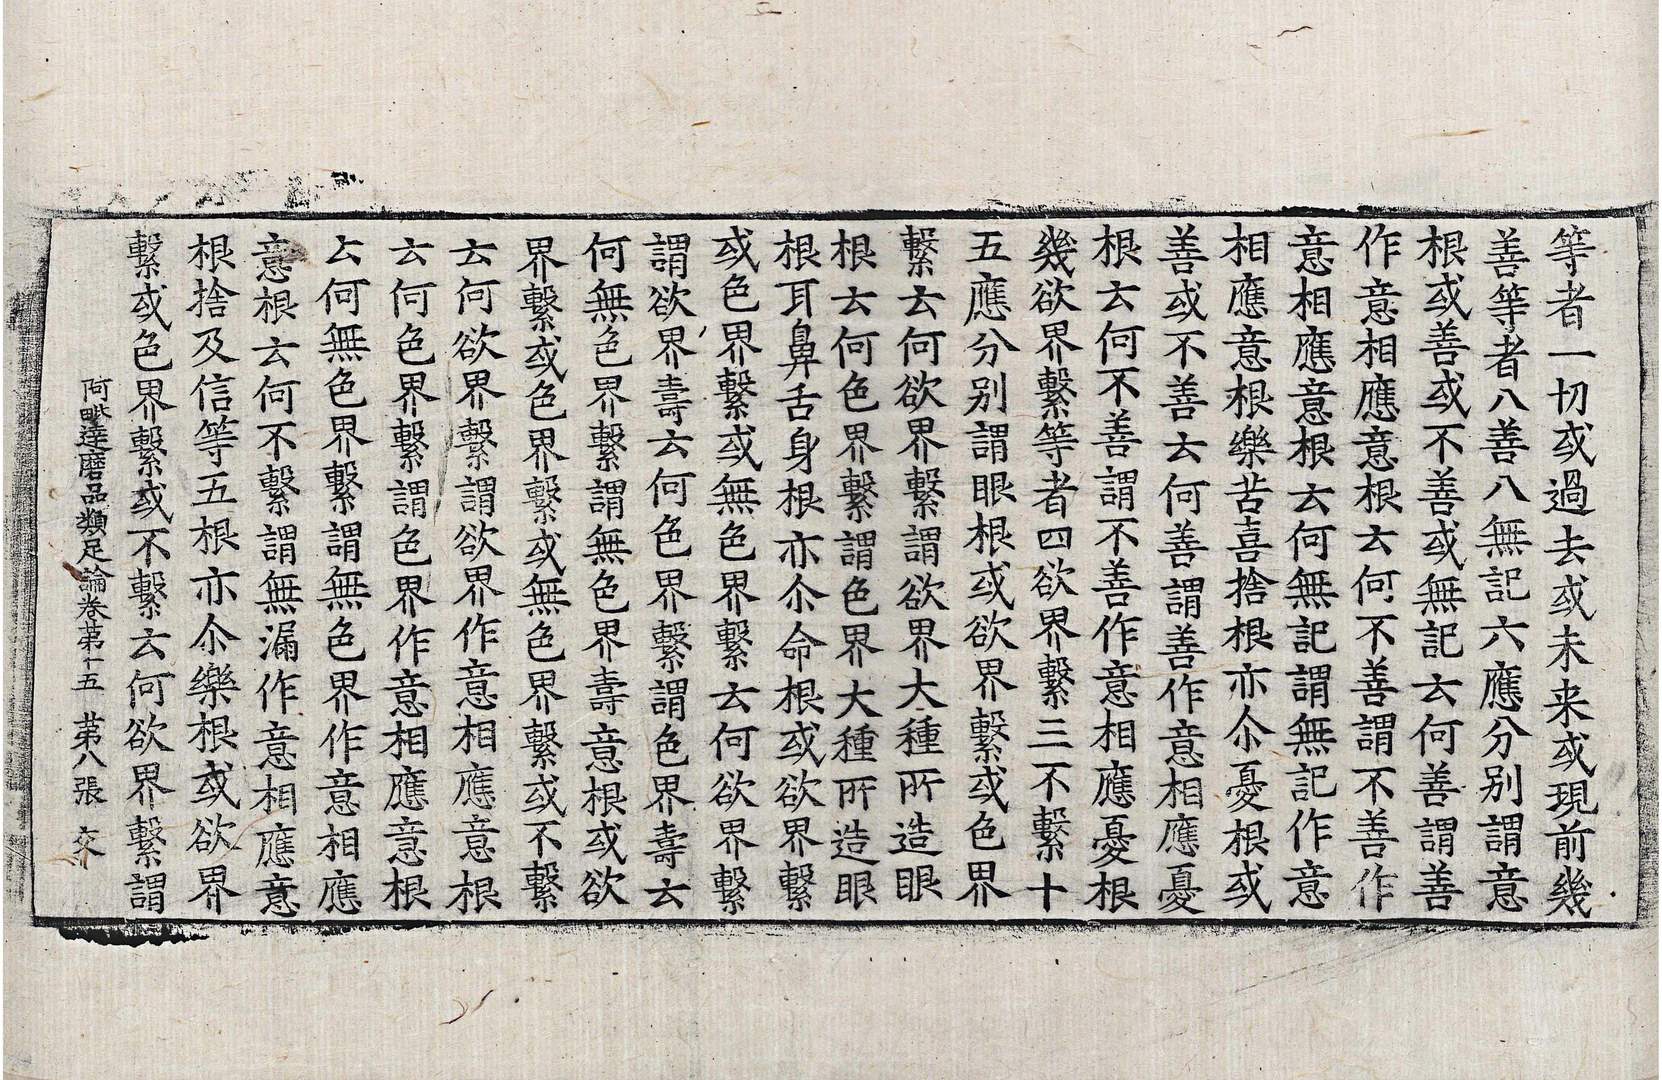 等者一切或過去或未来或現前幾
善等者八善八無記六應分别謂意
根或善或不善或無記云何善謂善
作意相應意根云何不善謂不善作
意相應意根云何無記謂無記作意
相應意根樂苦喜捨根亦尒憂根或
善或不善云何善謂善作意相應憂
根云何不善謂不善作意相應憂根
幾欲界繫等者四欲界繫三不繫十
五應分别謂眼根或欲界繫或色界
繫云何欲界繫謂欲界大種所造眼
根云何色界繫謂色界大種所造眼
根耳鼻舌身根亦尒命根或欲界繫
或色界繫或無色界繫云何欲界繫
謂欲界壽云何色界繫謂色界壽云
何無色界繫謂無色界壽意根或欲
界繫或色界繫或無色界繫或不繫
云何欲界繫謂欲界作意相應意根
云何色界繫謂色界作意相應意根
云何無色界繫謂無色界作意相應
意根云何不繫謂無漏作意相應意
根捨及信等五根亦尒樂根或欲界
繫或色界繫或不繫云何欲界繫謂
阿毗達磨品類足論卷第十五 第八張 交